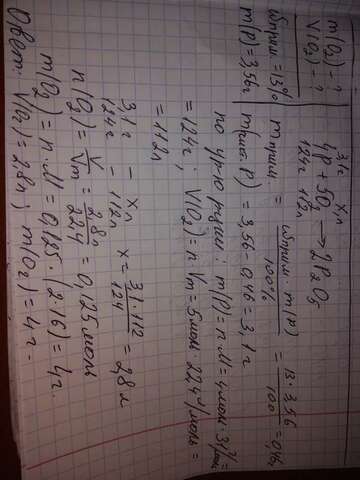 m(O₂) - ?
V(O₂) - ?
ωприм. = 13%
m(P) = 3,56г
3,1г xл
4P + 5O₂ → 2P₂O₅
124г 112л
mприм. = ωприм. · m(P) / 100% = 13 · 3,56 / 100 = 0,46г
m(чист. P) = 3,56 - 0,46 = 3,1г
по ур-ю р-ции: m(P) = n · M = 4моль · 31г/моль =
= 124г; V(O₂) = n · Vm = 5моль · 22,4л/моль =
= 112л
3,1г — xл
124г — 112л x = 3,1 · 112 / 124 = 2,8л
n(O₂) = V / Vm = 2,8л / 22,4 = 0,125моль
m(O₂) = n · M = 0,125 · (2·16) = 4г.
Ответ: V(O₂) = 2,8л; m(O₂) = 4г.